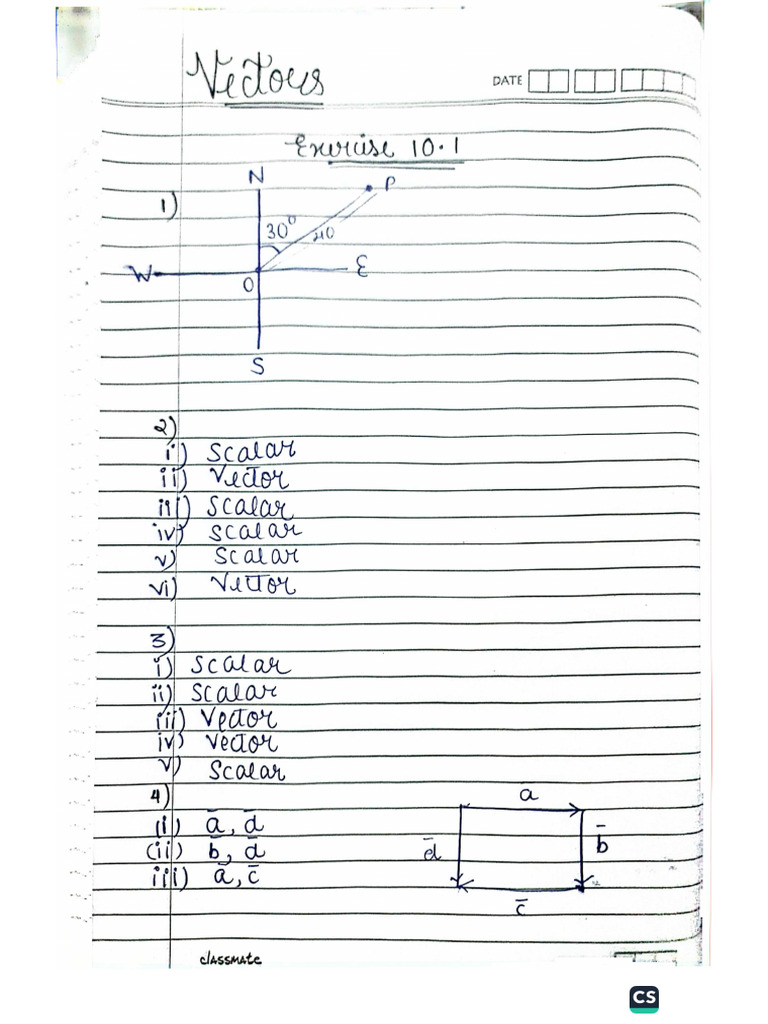 Vectors
DATE
Exercise 10.1
N
1)
P
30°
40
W
E
O
S
2)
i) Scalar
ii) Vector
iii) Scalar
iv) Scalar
v) Scalar
vi) Vector
3)
i) Scalar
ii) Scalar
iii) Vector
iv) Vector
v) Scalar
4)
a̅
(i) a̅, d̅
(ii) b̅, d̅
d̅
b̅
iii) a̅, c̅
c̅
classmate
CS